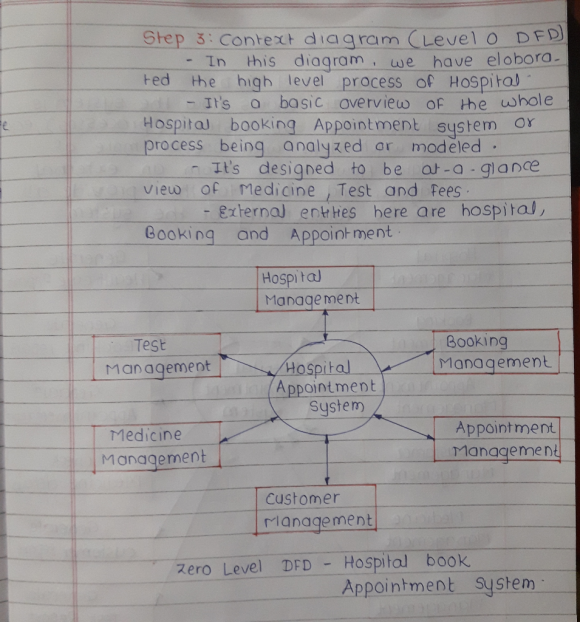 Step 3: Context diagram (Level 0 DFD)
- In this diagram, we have elobora-
ted the high level process of Hospital.
- It's a basic overview of the whole
Hospital booking Appointment system or
process being analyzed or modeled.
- It's designed to be at-a-glance
view of Medicine, Test and fees.
- External entities here are hospital,
Booking and Appointment.
Hospital
Management
Test
Management
Booking
Management
Hospital
Appointment
System
Medicine
Management
Appointment
Management
Customer
Management
Zero Level DFD - Hospital book
Appointment System.